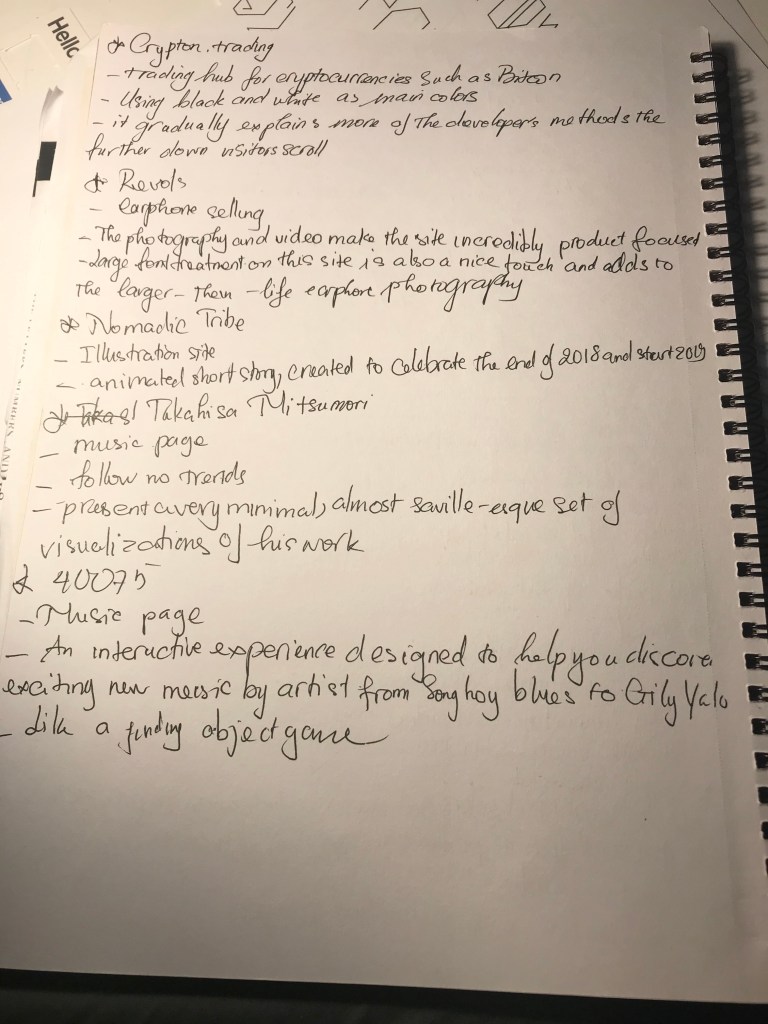 Hello
* Crypton.trading
- trading hub for cryptocurrencies such as Bitcoin
- Using black and white as main colors
- it gradually explains more of The developer's methods the
further down visitors scroll
* Revols
- earphone selling
- The photography and video make the site incredibly product focused
- Large font treatment on this site is also a nice touch and adds to
The larger-than-life earphone photography
* Nomadic Tribe
- Illustration site
- animated short story, created to celebrate the end of 2018 and start 2019
* Takahisa Mitsumori
- music page
- follow no trends
- present a very minimal, almost saville-esque set of
visualizations of his work
* 40075
- Music page
- An interactive experience designed to help you discover
exciting new music by artist from Songhoy blues to Gily Yalo
- like a finding object game